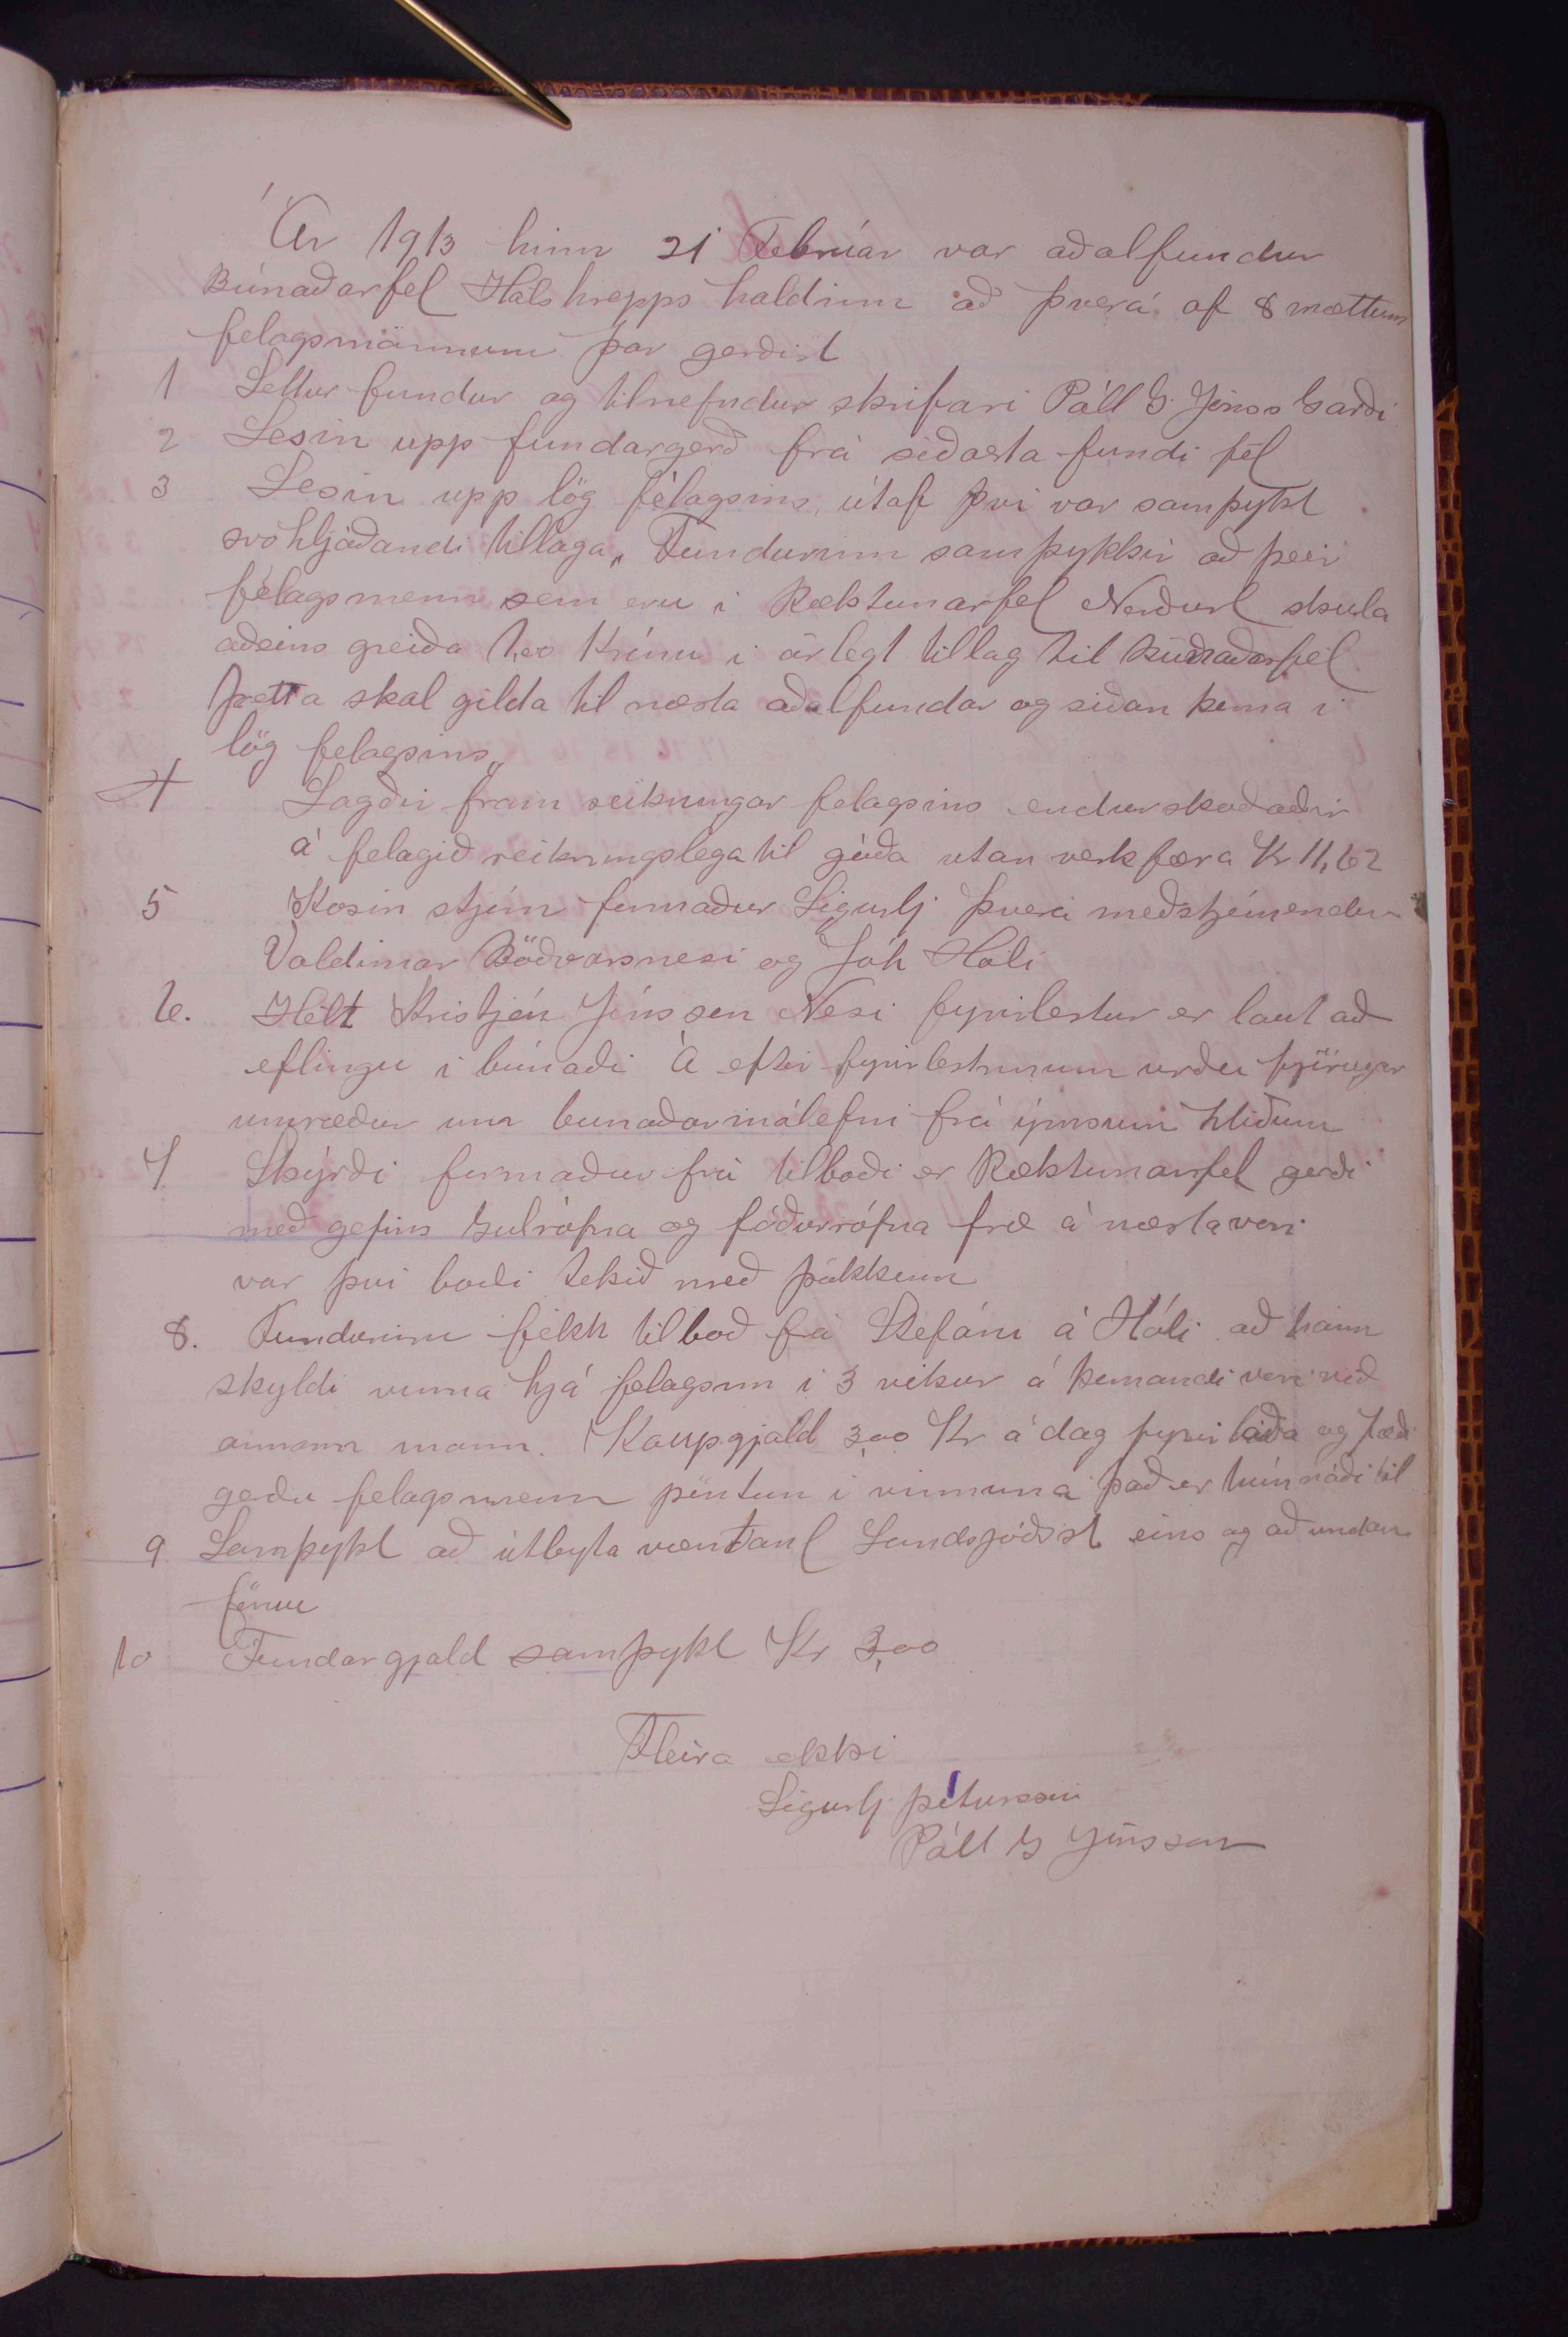 Ár 1913 hinn 21 Febrúar var aðalfundur
Búnaðarfel Hálshrepps haldinn að Þverá af 8 mættum
felagsmönnum þar gerðist
1 Settur fundur og tilnefndur skrifari Páll G. Jónss Garði
2 Lesin upp fundargerð frá siðasta fundi fél
3 Lesin upp lög félagsins, útaf því var samþykt
svohljóðandi tillaga „Fundurinn samþykkir að þeir
félagsmenn sem eru i Ræktunarfel Norðurl skula
aðeins greiða 1,00 Krónu i árlegt tillag til Búnaðarfél
þetta skal gilda til næsta aðalfundar og siðan koma i
lög felagsins„
4 Lagðir fram reikningar felagsins endurskoðaðir
á felagið reikningslega til góða utan verkfæra Kr 11,62
5 Kosin stjórn formaður Sigurlj Þverá meðstjórnendur
Valdimar Böðvarsnesi og Jóh Hóli
6. Hélt Kristján Jónsson Nesi fyrirlestur er laut að
eflingu i búnaði Á eftir fyrirlestrinum urðu fjörugar
umræður um bunaðarmálefni frá ýmsum hliðum
7 Skýrði formaður frá tilboði er Ræktunarfel gerði
með gefins Gulrófna og fóðurrófna fræ á næsta vori
var því boði tekið með þökkum
8. Fundurinn fékk tilboð frá Stefáni á Hóli að hann
skyldi vinna hjá felaginu i 3 vikur á komandi vori við
annann mann. Kaupgjald 3,00 Kr á dag fyrir báða og fæði
gerðu felagsmenn pöntun i vinnuna það er hún náði til
9 Samþykt að útbyta væntanl Landsjóðsst eins og að undan
förnu
10 Fundargjald samþykt Kr 3,00
Fleira ekki
Sigurlj Pétursson
Páll G Jónsson